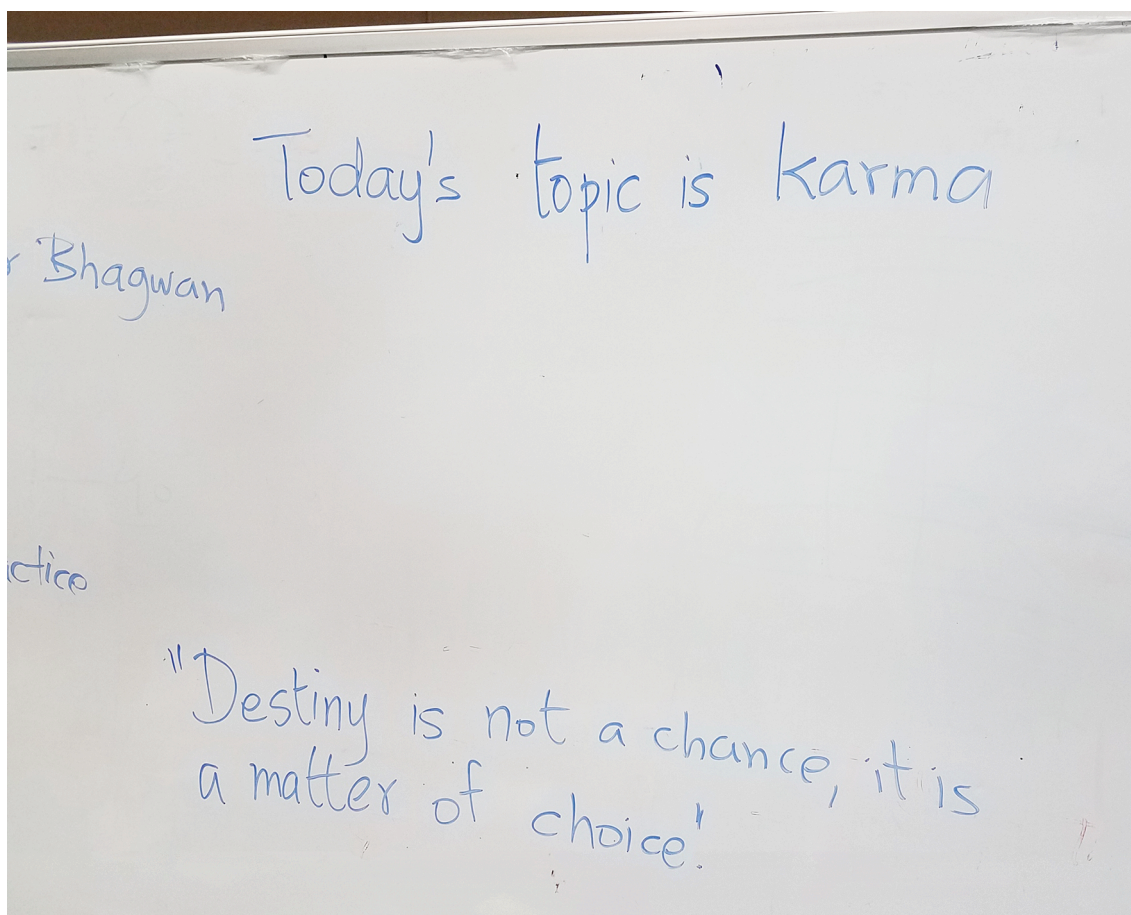 Today's topic is karma
Bhagwan
"Destiny is not a chance, it is
a matter of choice."